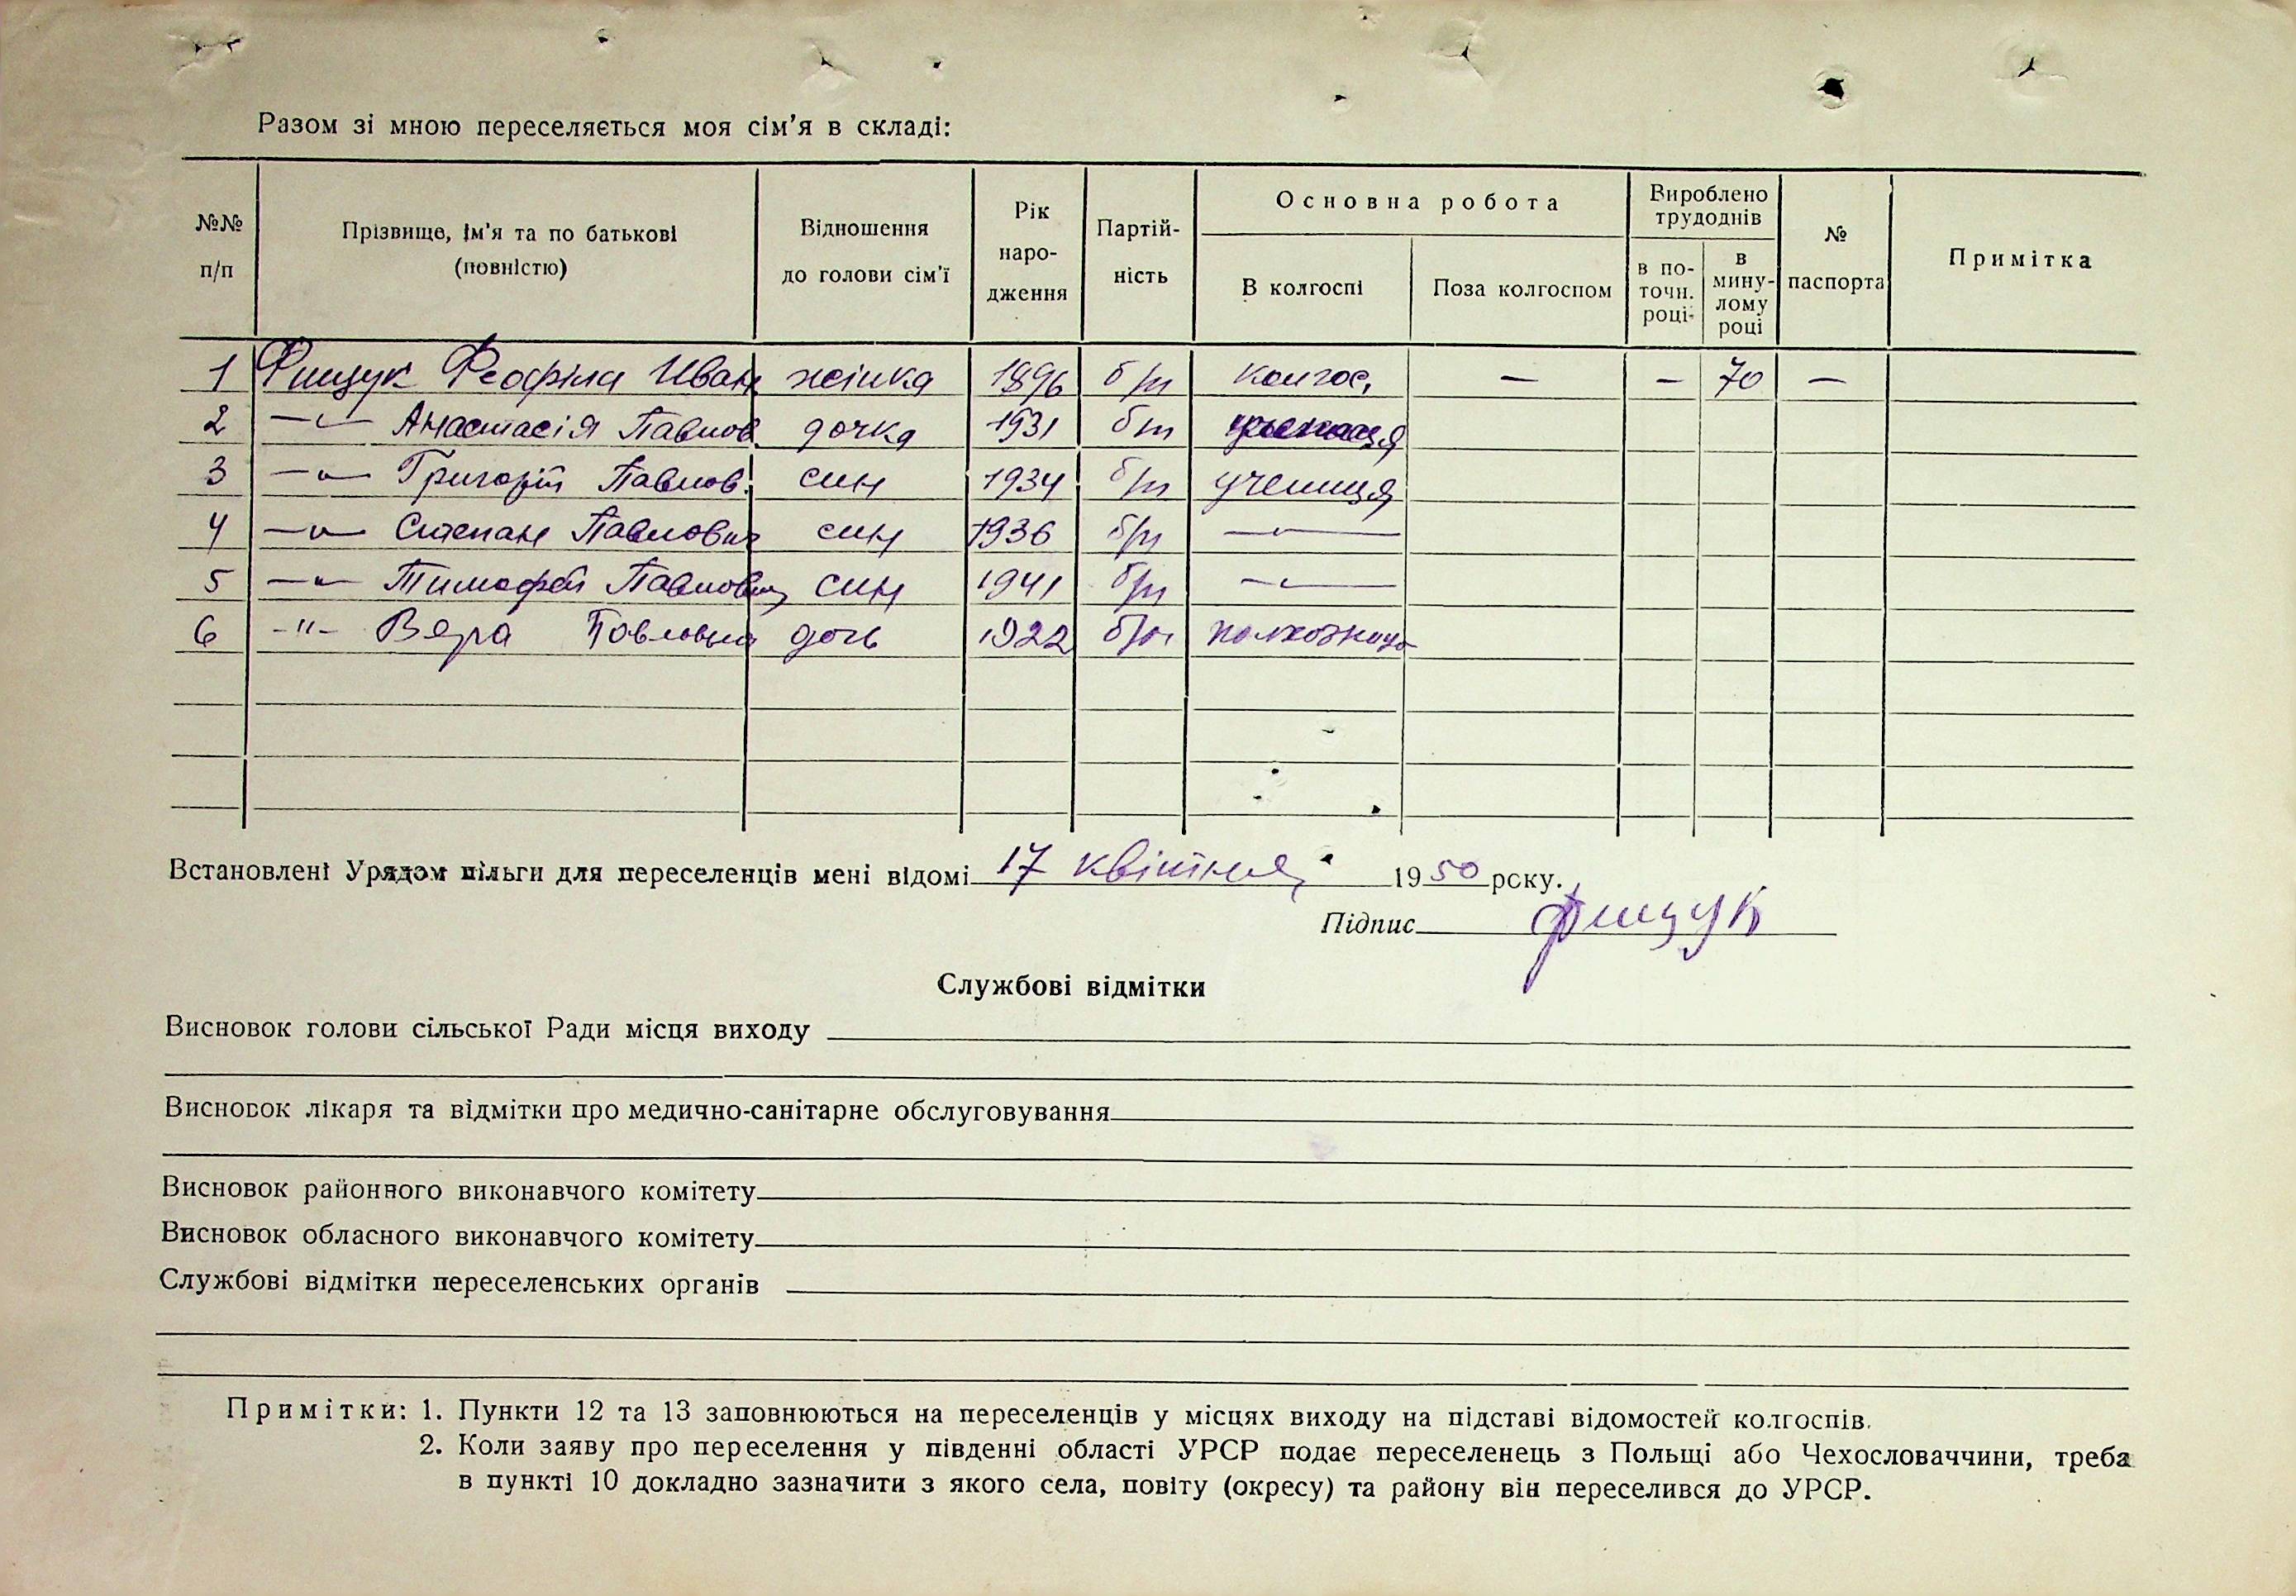 Разом зі мною переселяється моя сім'я в складі:
№№ п/п | Прізвище, ім'я та по батькові (повністю) | Відношення до голови сім'ї | Рік народження | Партійність | Основна робота: В колгоспі | Поза колгоспом | Вироблено трудоднів: в поточн. році | в минулому році | № паспорта | Примітка
1 Фищук Феофіла Иван жінка 1896 б/п колгос. — — 70 —
2 —"— Анастасія Павлов. дочка 1931 бп
3 —"— Григорій Павлов. син 1934 б/п учениця
4 —"— Степан Павлович син 1936 б/п —"—
5 —"— Тимофей Павлович син 1941 б/п —"—
6 -"- Вера Повловна дочь 1922 б/п
Встановлені Урядом пільги для переселенців мені відомі 17 квітня, 1950 року.
Підпис Фищук
Службові відмітки
Висновок голови сільської Ради місця виходу
Висновок лікаря та відмітки про медично-санітарне обслуговування
Висновок районного виконавчого комітету
Висновок обласного виконавчого комітету
Службові відмітки переселенських органів
Примітки: 1. Пункти 12 та 13 заповнюються на переселенців у місцях виходу на підставі відомостей колгоспів.
2. Коли заяву про переселення у південні області УРСР подає переселенець з Польщі або Чехословаччини, треба
в пункті 10 докладно зазначити з якого села, повіту (окресу) та району він переселився до УРСР.